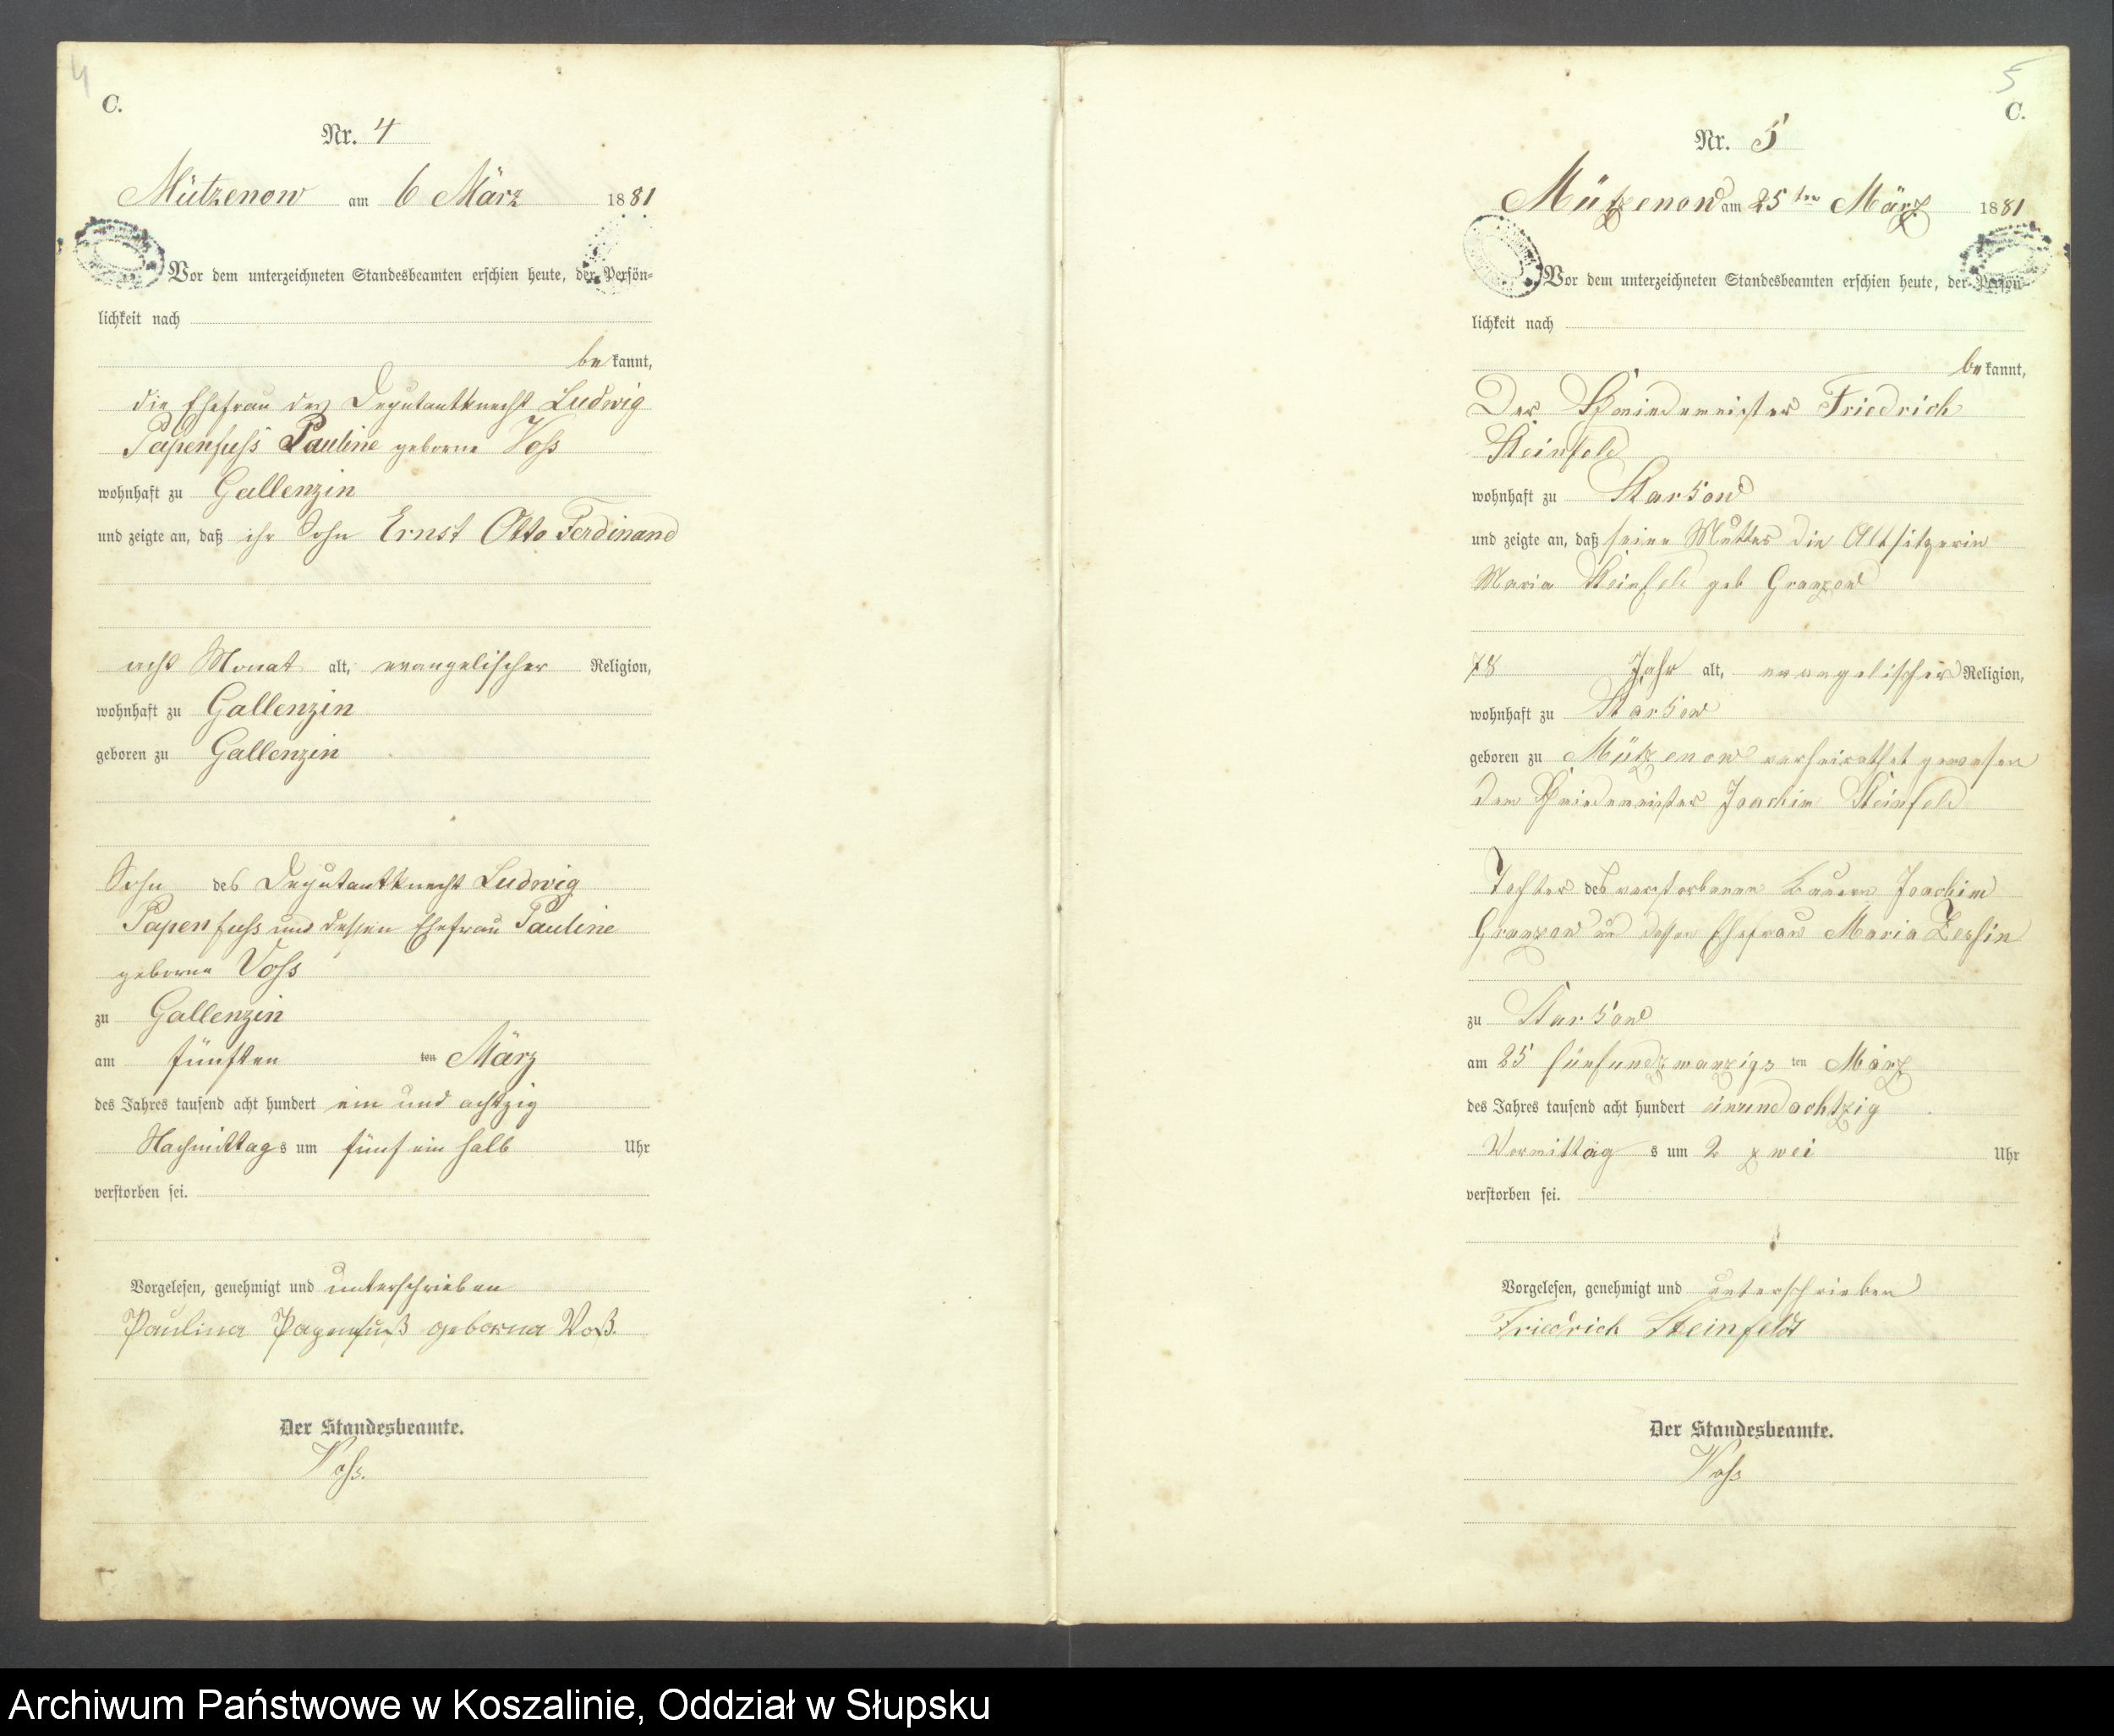 4
C.
Nr. 4
Mützenow am 6 März 1881
Vor dem unterzeichneten Standesbeamten erschien heute, der Persön-
lichkeit nach
bekannt,
die Ehefrau des Deputantknecht Ludwig
Papenfuss Pauline geborne Voss
wohnhaft zu Gallenzin
und zeigte an, daß ihr Sohn Ernst Otto Ferdinand
acht Monat alt, evangelischer Religion,
wohnhaft zu Gallenzin
geboren zu Gallenzin
Sohn des Deputantknecht Ludwig
Papenfuss und dessen Ehefrau Pauline
geborne Voss
zu Gallenzin
am fünften ten März
des Jahres tausend acht hundert ein und achtzig
Nachmittags um fünf ein halb Uhr
verstorben sei.
Vorgelesen, genehmigt und unterschrieben
Paulina Papenfuß geborna Voß.
Der Standesbeamte.
Voss.
5
C.
Nr. 5
Mützenow am 25ten März 1881
Vor dem unterzeichneten Standesbeamten erschien heute, der Persön-
lichkeit nach
bekannt,
Der Schmiedemeister Friedrich
Steinfeld
wohnhaft zu Starkow
und zeigte an, daß seine Mutter die Altsitzerin
Maria Steinfeld geb Granzow
78 Jahr alt, evangelischer Religion,
wohnhaft zu Starkow
geboren zu Mützenow verheirathet gewesen
dem Schmiedemeister Joachim Steinfeld
Tochter des verstorbenen Bauern Joachim
Granzow und dessen Ehefrau Maria Zessin
zu Starkow
am 25 fünfundzwanzigs ten März
des Jahres tausend acht hundert einundachtzig
Vormittag s um 2 zwei Uhr
verstorben sei.
Vorgelesen, genehmigt und unterschrieben
Friedrich Steinfeldt
Der Standesbeamte.
Voss
Archiwum Państwowe w Koszalinie, Oddział w Słupsku